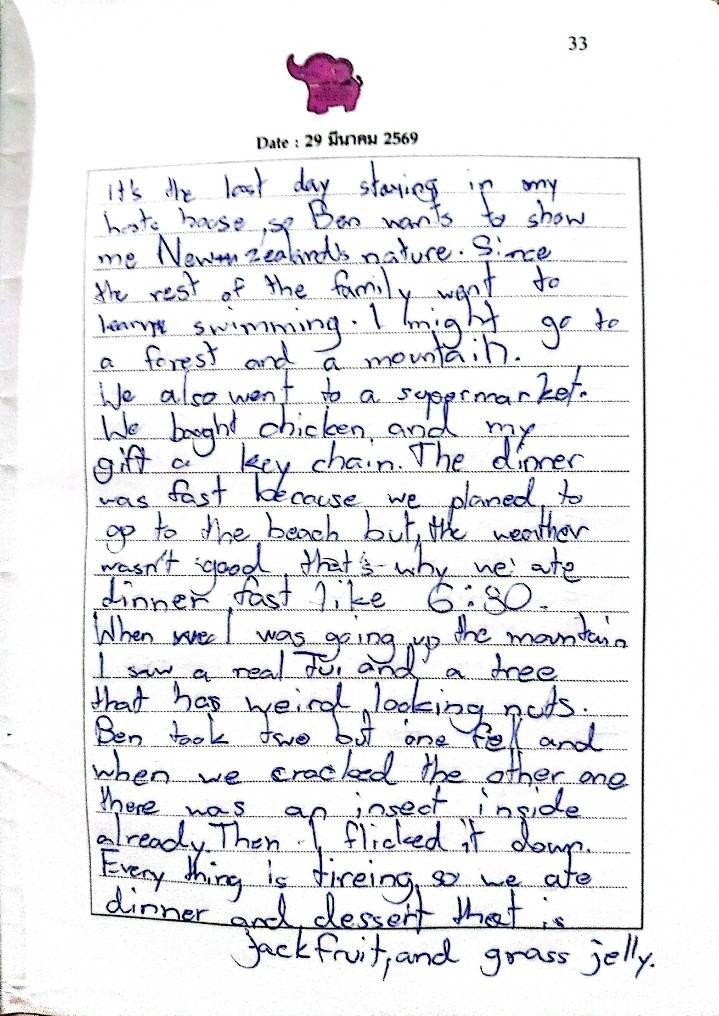 33
Date : 29 มีนาคม 2569
It's the last day staying in my
hosts house, so Ben wants to show
me New zealand's nature. Since
the rest of the family want to
learn swimming. I might go to
a forest and a mountain.
We also went to a supermarket.
We bought chicken, and my
gift a key chain. The dinner
was fast because we planed to
go to the beach but, the weather
wasn't good that's why we ate
dinner fast like 6:30.
When I was going up the mountain
I saw a real Tui and a tree
that has weird looking nuts.
Ben took two but one fell and
when we cracked the other one
there was an insect inside
already. Then I flicked it down.
Every thing is tireing, so we ate
dinner and dessert that is
jackfruit, and grass jelly.